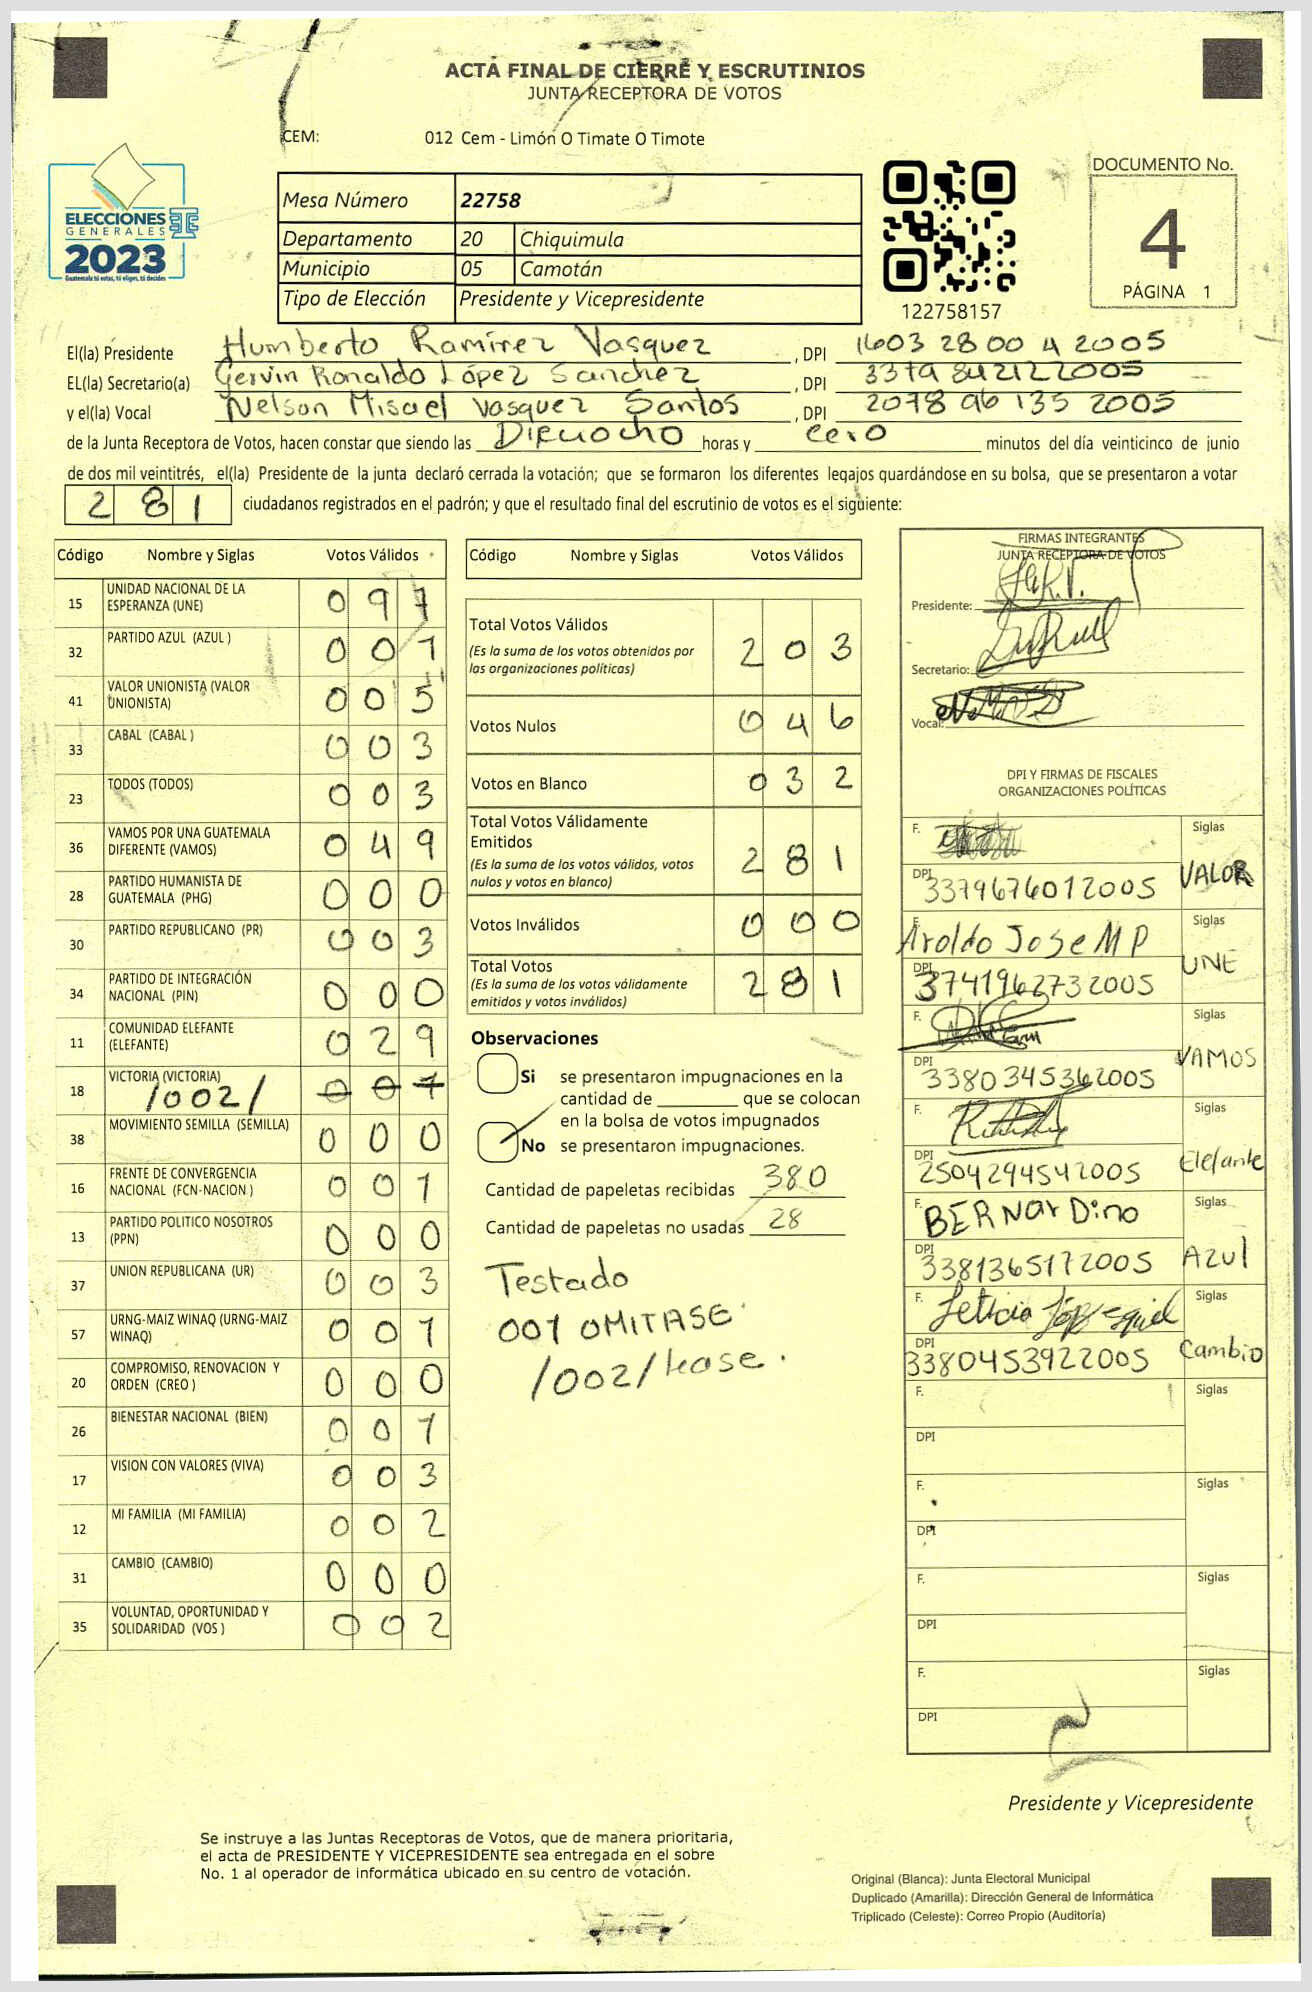 ACTA FINAL DE CIERRE Y ESCRUTINIOS
JUNTA RECEPTORA DE VOTOS
CEM: 012 Cem - Limón O Timate O Timote
ELECCIONES
GENERALES
2023
Guatemala tú votas, tú eliges, tú decides
Mesa Número 22758
Departamento 20 Chiquimula
Municipio 05 Camotán
Tipo de Elección Presidente y Vicepresidente
122758157
DOCUMENTO No.
4
PÁGINA 1
El(la) Presidente Humberto Ramirez Vasquez , DPI 1603 2800 4 2005
EL(la) Secretario(a) Gervin Ronaldo López Sanchez , DPI 3379 842122005
y el(la) Vocal Nelson Misael Vasquez Santos , DPI 2078 96 135 2005
de la Junta Receptora de Votos, hacen constar que siendo las Dieciocho horas y cero minutos del día veinticinco de junio
de dos mil veintitrés, el(la) Presidente de la junta declaró cerrada la votación; que se formaron los diferentes legajos quardándose en su bolsa, que se presentaron a votar
281 ciudadanos registrados en el padrón; y que el resultado final del escrutinio de votos es el siguiente:
Código Nombre y Siglas Votos Válidos
15 UNIDAD NACIONAL DE LA ESPERANZA (UNE) 097
32 PARTIDO AZUL (AZUL ) 001
41 VALOR UNIONISTA (VALOR UNIONISTA) 005
33 CABAL (CABAL ) 003
23 TODOS (TODOS) 003
36 VAMOS POR UNA GUATEMALA DIFERENTE (VAMOS) 049
28 PARTIDO HUMANISTA DE GUATEMALA (PHG) 000
30 PARTIDO REPUBLICANO (PR) 003
34 PARTIDO DE INTEGRACIÓN NACIONAL (PIN) 000
11 COMUNIDAD ELEFANTE (ELEFANTE) 029
18 VICTORIA (VICTORIA) /002/ 001
38 MOVIMIENTO SEMILLA (SEMILLA) 000
16 FRENTE DE CONVERGENCIA NACIONAL (FCN-NACION ) 001
13 PARTIDO POLITICO NOSOTROS (PPN) 000
37 UNION REPUBLICANA (UR) 003
57 URNG-MAIZ WINAQ (URNG-MAIZ WINAQ) 001
20 COMPROMISO, RENOVACION Y ORDEN (CREO ) 000
26 BIENESTAR NACIONAL (BIEN) 001
17 VISION CON VALORES (VIVA) 003
12 MI FAMILIA (MI FAMILIA) 002
31 CAMBIO (CAMBIO) 000
35 VOLUNTAD, OPORTUNIDAD Y SOLIDARIDAD (VOS ) 002
Código Nombre y Siglas Votos Válidos
Total Votos Válidos 203
(Es la suma de los votos obtenidos por
las organizaciones políticas)
Votos Nulos 046
Votos en Blanco 032
Total Votos Válidamente
Emitidos 281
(Es la suma de los votos válidos, votos
nulos y votos en blanco)
Votos Inválidos 000
Total Votos 281
(Es la suma de los votos válidamente
emitidos y votos inválidos)
Observaciones
Si se presentaron impugnaciones en la
cantidad de ________ que se colocan
en la bolsa de votos impugnados
No se presentaron impugnaciones.
Cantidad de papeletas recibidas 380
Cantidad de papeletas no usadas 28
Testado
001 OMITASE
/002/ lease.
FIRMAS INTEGRANTES
JUNTA RECEPTORA DE VOTOS
Presidente:
Secretario:
Vocal:
DPI Y FIRMAS DE FISCALES
ORGANIZACIONES POLÍTICAS
F. Siglas
DPI 3379676012005 VALOR
F. Aroldo Jose M P Siglas
DPI 3741962732005 UNE
F. Siglas
DPI 3380345362005 VAMOS
F. Siglas
DPI 2504294542005 Elefante
F. BERNarDino Siglas
DPI 3381365172005 AZUl
F. Leticia Siglas
DPI 3380453922005 Cambio
F. Siglas
DPI
F. Siglas
DPI
F. Siglas
DPI
F. Siglas
DPI
Presidente y Vicepresidente
Se instruye a las Juntas Receptoras de Votos, que de manera prioritaria,
el acta de PRESIDENTE Y VICEPRESIDENTE sea entregada en el sobre
No. 1 al operador de informática ubicado en su centro de votación.
Original (Blanca): Junta Electoral Municipal
Duplicado (Amarilla): Dirección General de Informática
Triplicado (Celeste): Correo Propio (Auditoría)